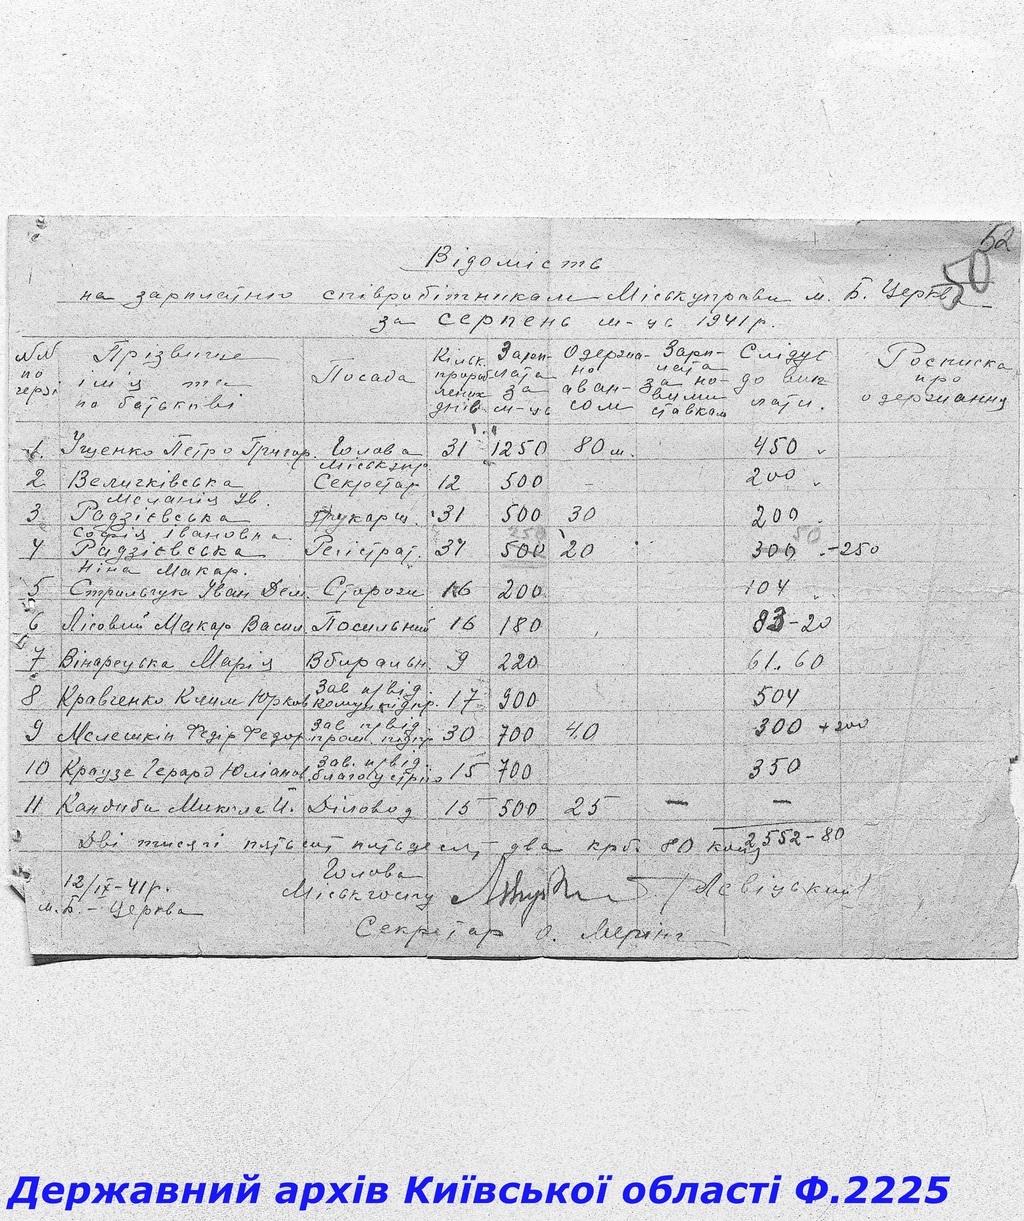 52
50
Відомість
на зарплатню співробітникам Міськуправи м. Б. Церкв
за серпень м-ць 1941 р.
№№ по черзі
Прізвище ім'я та по батькові
Посада
Кільк. днів
Зарплата за м-ць
Одержано авансом
Зарплата за новими ставкам
Слідує до виплати.
Росписка про одержання
1. Ущенко Петро Григор. Голова міськупр 31 1250 80 450
2 Величківська Секретар 12 500 - 200
3 Радзієвська Софія Івановна Друкарщ. 31 500 30 200
4 Радзієвська Ніна Макар. Регістрат. 31 500 20 300 -250
5 Стрільчук Іван Дем. Сторож 16 200 104
6 Лісовий Макар Васил. Посильний 16 180 83-20
7 Вінарецька Марія Вбиральн. 9 220 61.60
8 Кравченко Клим Юрков. Зав. п/від комун. підпр. 17 900 504
9 Мелешкін Федір Федор Зав. п/від пром. підпр 30 700 40 300 +200
10 Краузе Герард Юліанов. Зав. п/від. благоустрію 15 700 350
11 Кандиба Микола Й. Діловод 15 500 25 — —
2552-80
Дві тисячі пятьсот пятьдесят два крб. 80 коп
12/IX-41р.
м. Б.-Церква
Голова
Міськгоспу /Левіцький/
Секретар О. Мерінг
Державний архів Київської області Ф.2225